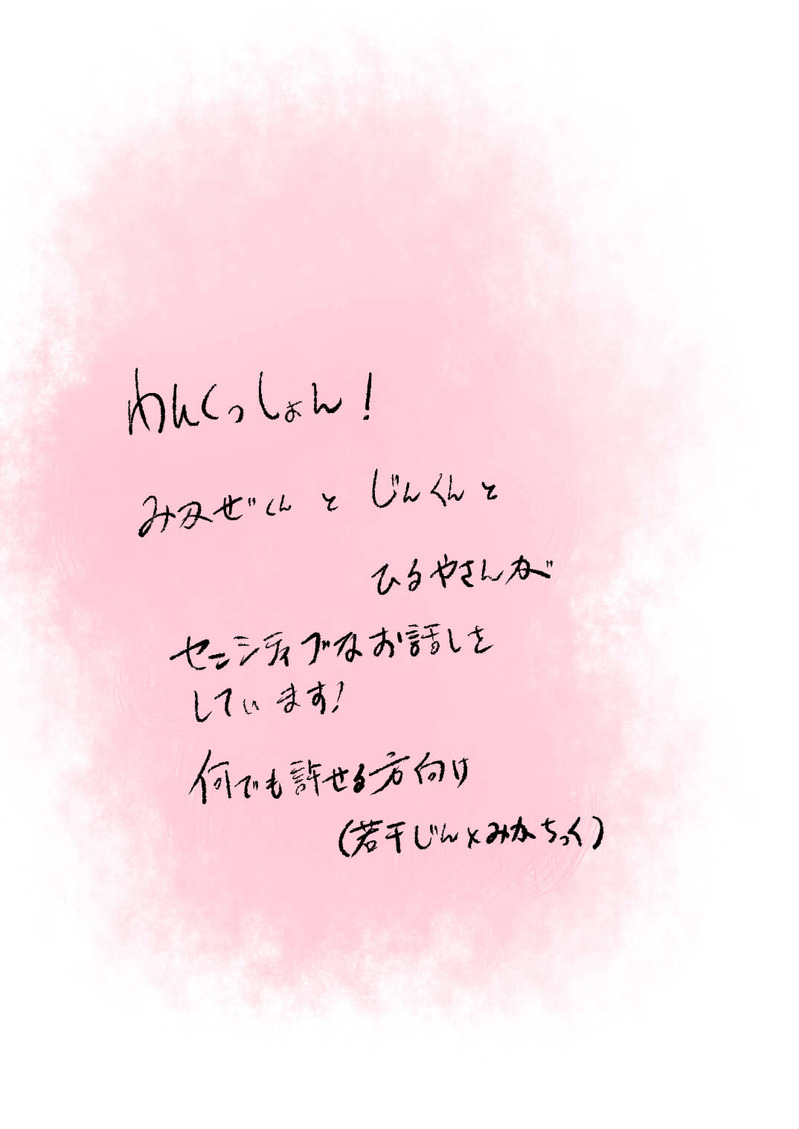 わんくっしょん!
みかぜくんとじんくんと
ひるやさんが
センシティブなお話しを
しています!
何でも許せる方向け
(若干じん×みかちっく)